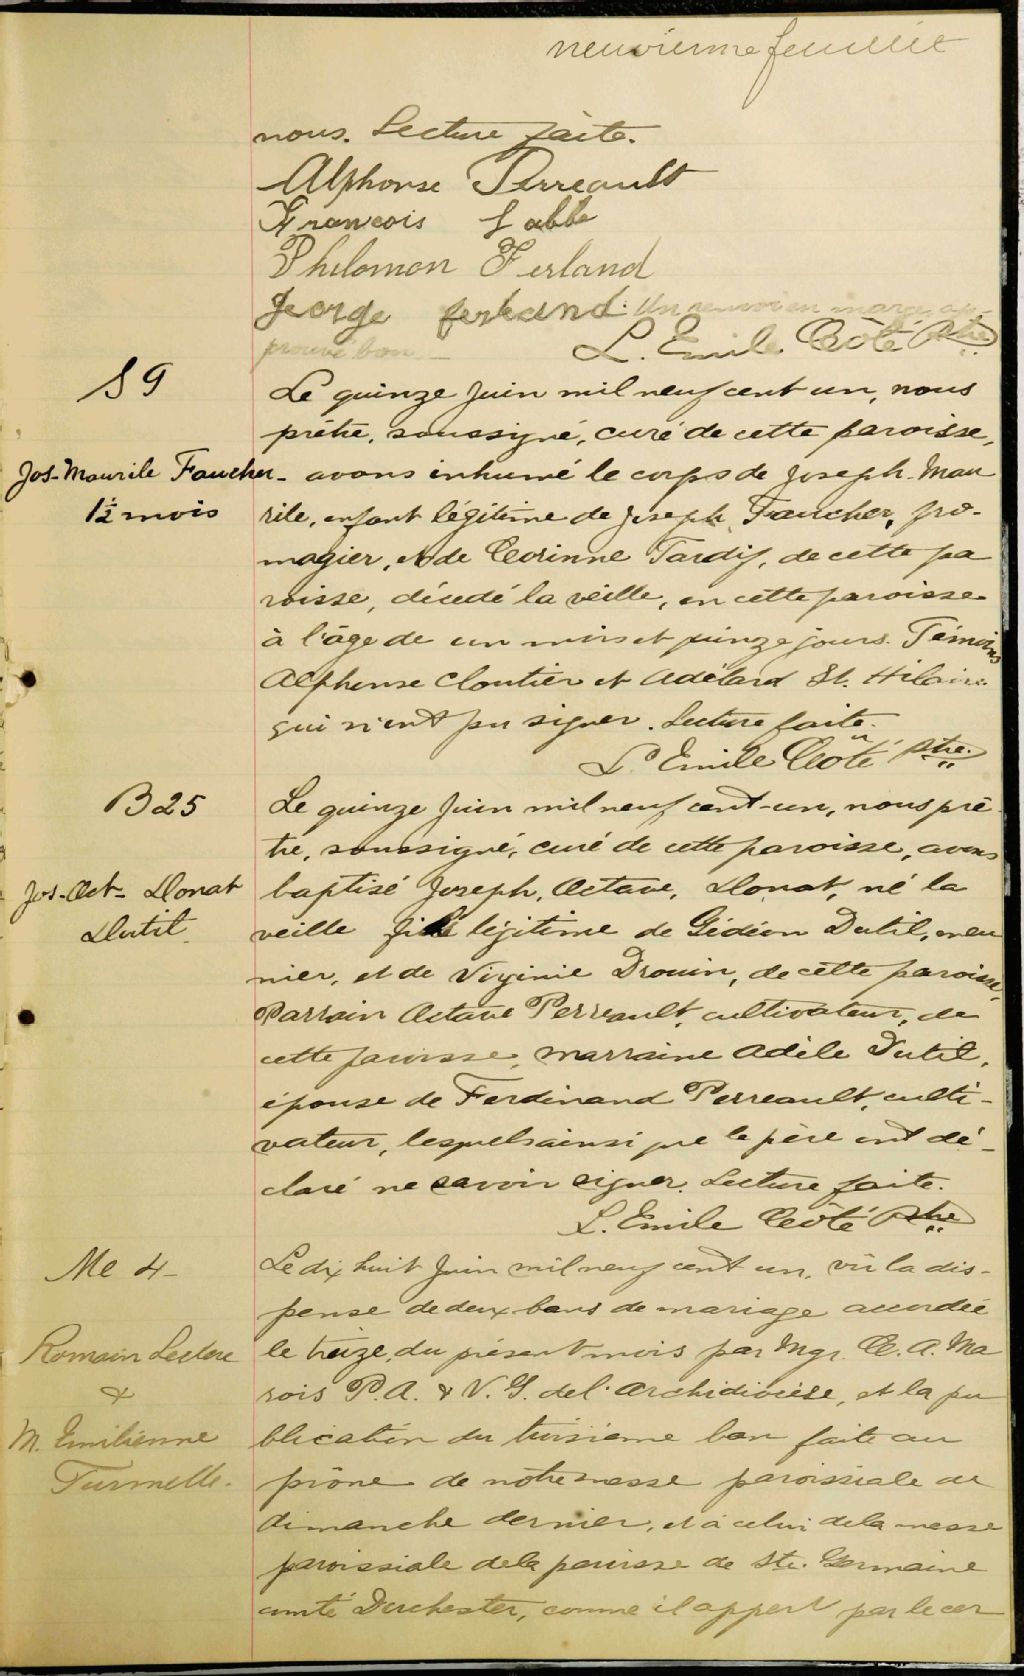 neuvième feuillet
nous. Lecture faite.
Alphonse Perreault
Francois Labbe
Philomon Ferland
George ferland. Un renvoi en marge, ap
prouvé bon. –
L. Emile Côté Ptre
S 9
Jos-Maurile Faucher
1½ mois
Le quinze Juin mil neuf cent un, nous
prêtre, soussigné, curé de cette paroisse,
avons inhumé le corps de Joseph-Mau
rile, enfant légitime de Joseph Faucher, fro-
magier, et de Corinne Tardif, de cette pa
roisse, décédé la veille, en cette paroisse
à l'âge de un mois et quinze jours. Témoins
Alphonse Cloutier et Adélard St. Hilaire
qui n'ont pu signer. Lecture faite.
L. Emile Côté Ptre.
B 25
Jos-Oct- Donat
Dutil
Le quinze Juin mil neuf cent-un, nous prê-
tre, soussigné, curé de cette paroisse, avons
baptisé Joseph, Octave, Donat, né la
veille fils légitime de Gédéon Dutil, meu
nier, et de Virginie Drouin, de cette paroisse,
Parrain Octave Perreault, cultivateur, de
cette paroisse, marraine Adèle Dutil,
épouse de Ferdinand Perreault, culti-
vateur, lesquels ainsi que le père ont dé-
claré ne savoir signer. Lecture faite.
L. Emile Côté Ptre
Me 4
Romain Leclerc
&
M. Emilienne
Turmelle.
Le dix huit Juin mil neuf cent un, vû la dis-
pense de deux bans de mariage accordée
le treize, du présent mois par Mgr. C. A. Ma
rois P.A. & V.G. de l'Archidiocèse, et la pu
blication du troisième ban faite au
prône de nôtre messe paroissiale de
dimanche dernier, et à celui de la messe
paroissiale de la paroisse de Ste. Germaine
comté Dorchester, comme il appert par le cer